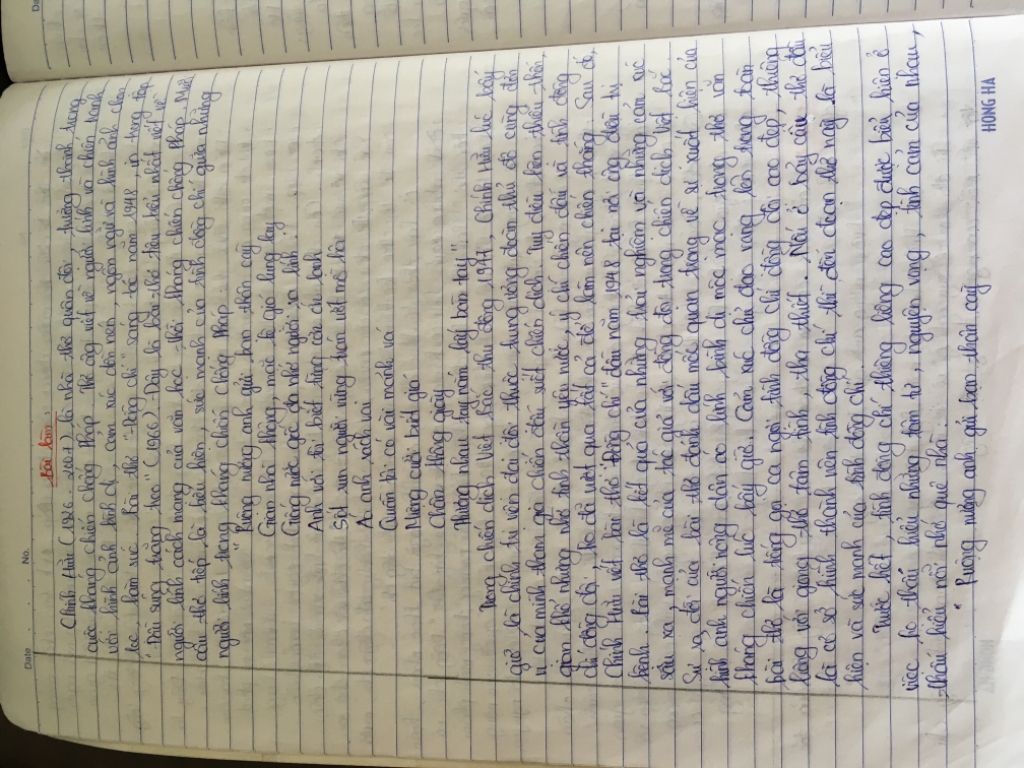 Date . No.
Bài làm
Chính Hữu (1926-2007) là nhà thơ quân đội trưởng thành trong
cuộc kháng chiến chống Pháp. Thơ ông viết về người lính và chiến tranh
với hình ảnh bình dị, cảm xúc dồn nén, ngôn ngữ và hình ảnh chọn
lọc, hàm súc. Bài thơ "Đồng chí" sáng tác năm 1948, in trong tập
"Đầu súng trăng treo" (1966). Đây là bài thơ tiêu biểu nhất viết về
người lính cách mạng của văn học thời kháng chiến chống Pháp. Mười
câu thơ tiếp là biểu hiện, sức mạnh của tình đồng chí giữa những
người lính trong kháng chiến chống Pháp
"Ruộng nương anh gửi bạn thân cày
Gian nhà không, mặc kệ gió lung lay
Giếng nước gốc đa nhớ người ra lính
Anh với tôi biết từng cơn ớn lạnh
Sốt run người vừng trán ướt mồ hôi
Áo anh rách vai
Quần tôi có vài mảnh vá
Miệng cười buốt giá
Chân không giày
Thương nhau tay nắm lấy bàn tay"
Trong chiến dịch Việt Bắc thu đông 1947, Chính Hữu lúc bấy
giờ là chính trị viên đại đội thuộc trung đoàn thủ đô cùng đơn
vị của mình tham gia chiến đấu suốt chiến dịch. Tuy đầu tiên thiếu thốn,
gian khổ nhưng nhờ tinh thần yêu nước, ý chí chiến đấu và tình đồng
chí đồng đội, họ đã vượt qua tất cả để làm nên chiến thắng. Sau đó,
Chính Hữu viết bài thơ "Đồng chí" đầu năm 1948 tại nơi ông điều trị
bệnh. Bài thơ là kết quả của những trải nghiệm và những cảm xúc
sâu xa, mạnh mẽ của tác giả với đồng đội trong chiến dịch Việt Bắc.
Sự ra đời của bài thơ đánh dấu mốc quan trọng về sự xuất hiện của
hình ảnh người nông dân áo lính bình dị mộc mạc trong thơ văn
kháng chiến lúc bấy giờ. Cảm xúc chủ đạo vang lên trong toàn
bài thơ là tiếng ca ngợi tình đồng chí đồng đội cao đẹp, thiêng
liêng với giọng thơ tâm tình, tha thiết. Nếu ở bảy câu thơ đầu
là cơ sở hình thành nên tình đồng chí thì đến đoạn thơ này là biểu
hiện và sức mạnh của tình đồng chí.
Trước hết, tình đồng chí thiêng liêng cao đẹp được biểu hiện ở
việc họ thấu hiểu những tâm tư, nguyện vọng, tình cảm của nhau,
thấu hiểu nỗi nhớ quê nhà:
"Ruộng nương anh gửi bạn thân cày
HONG HA